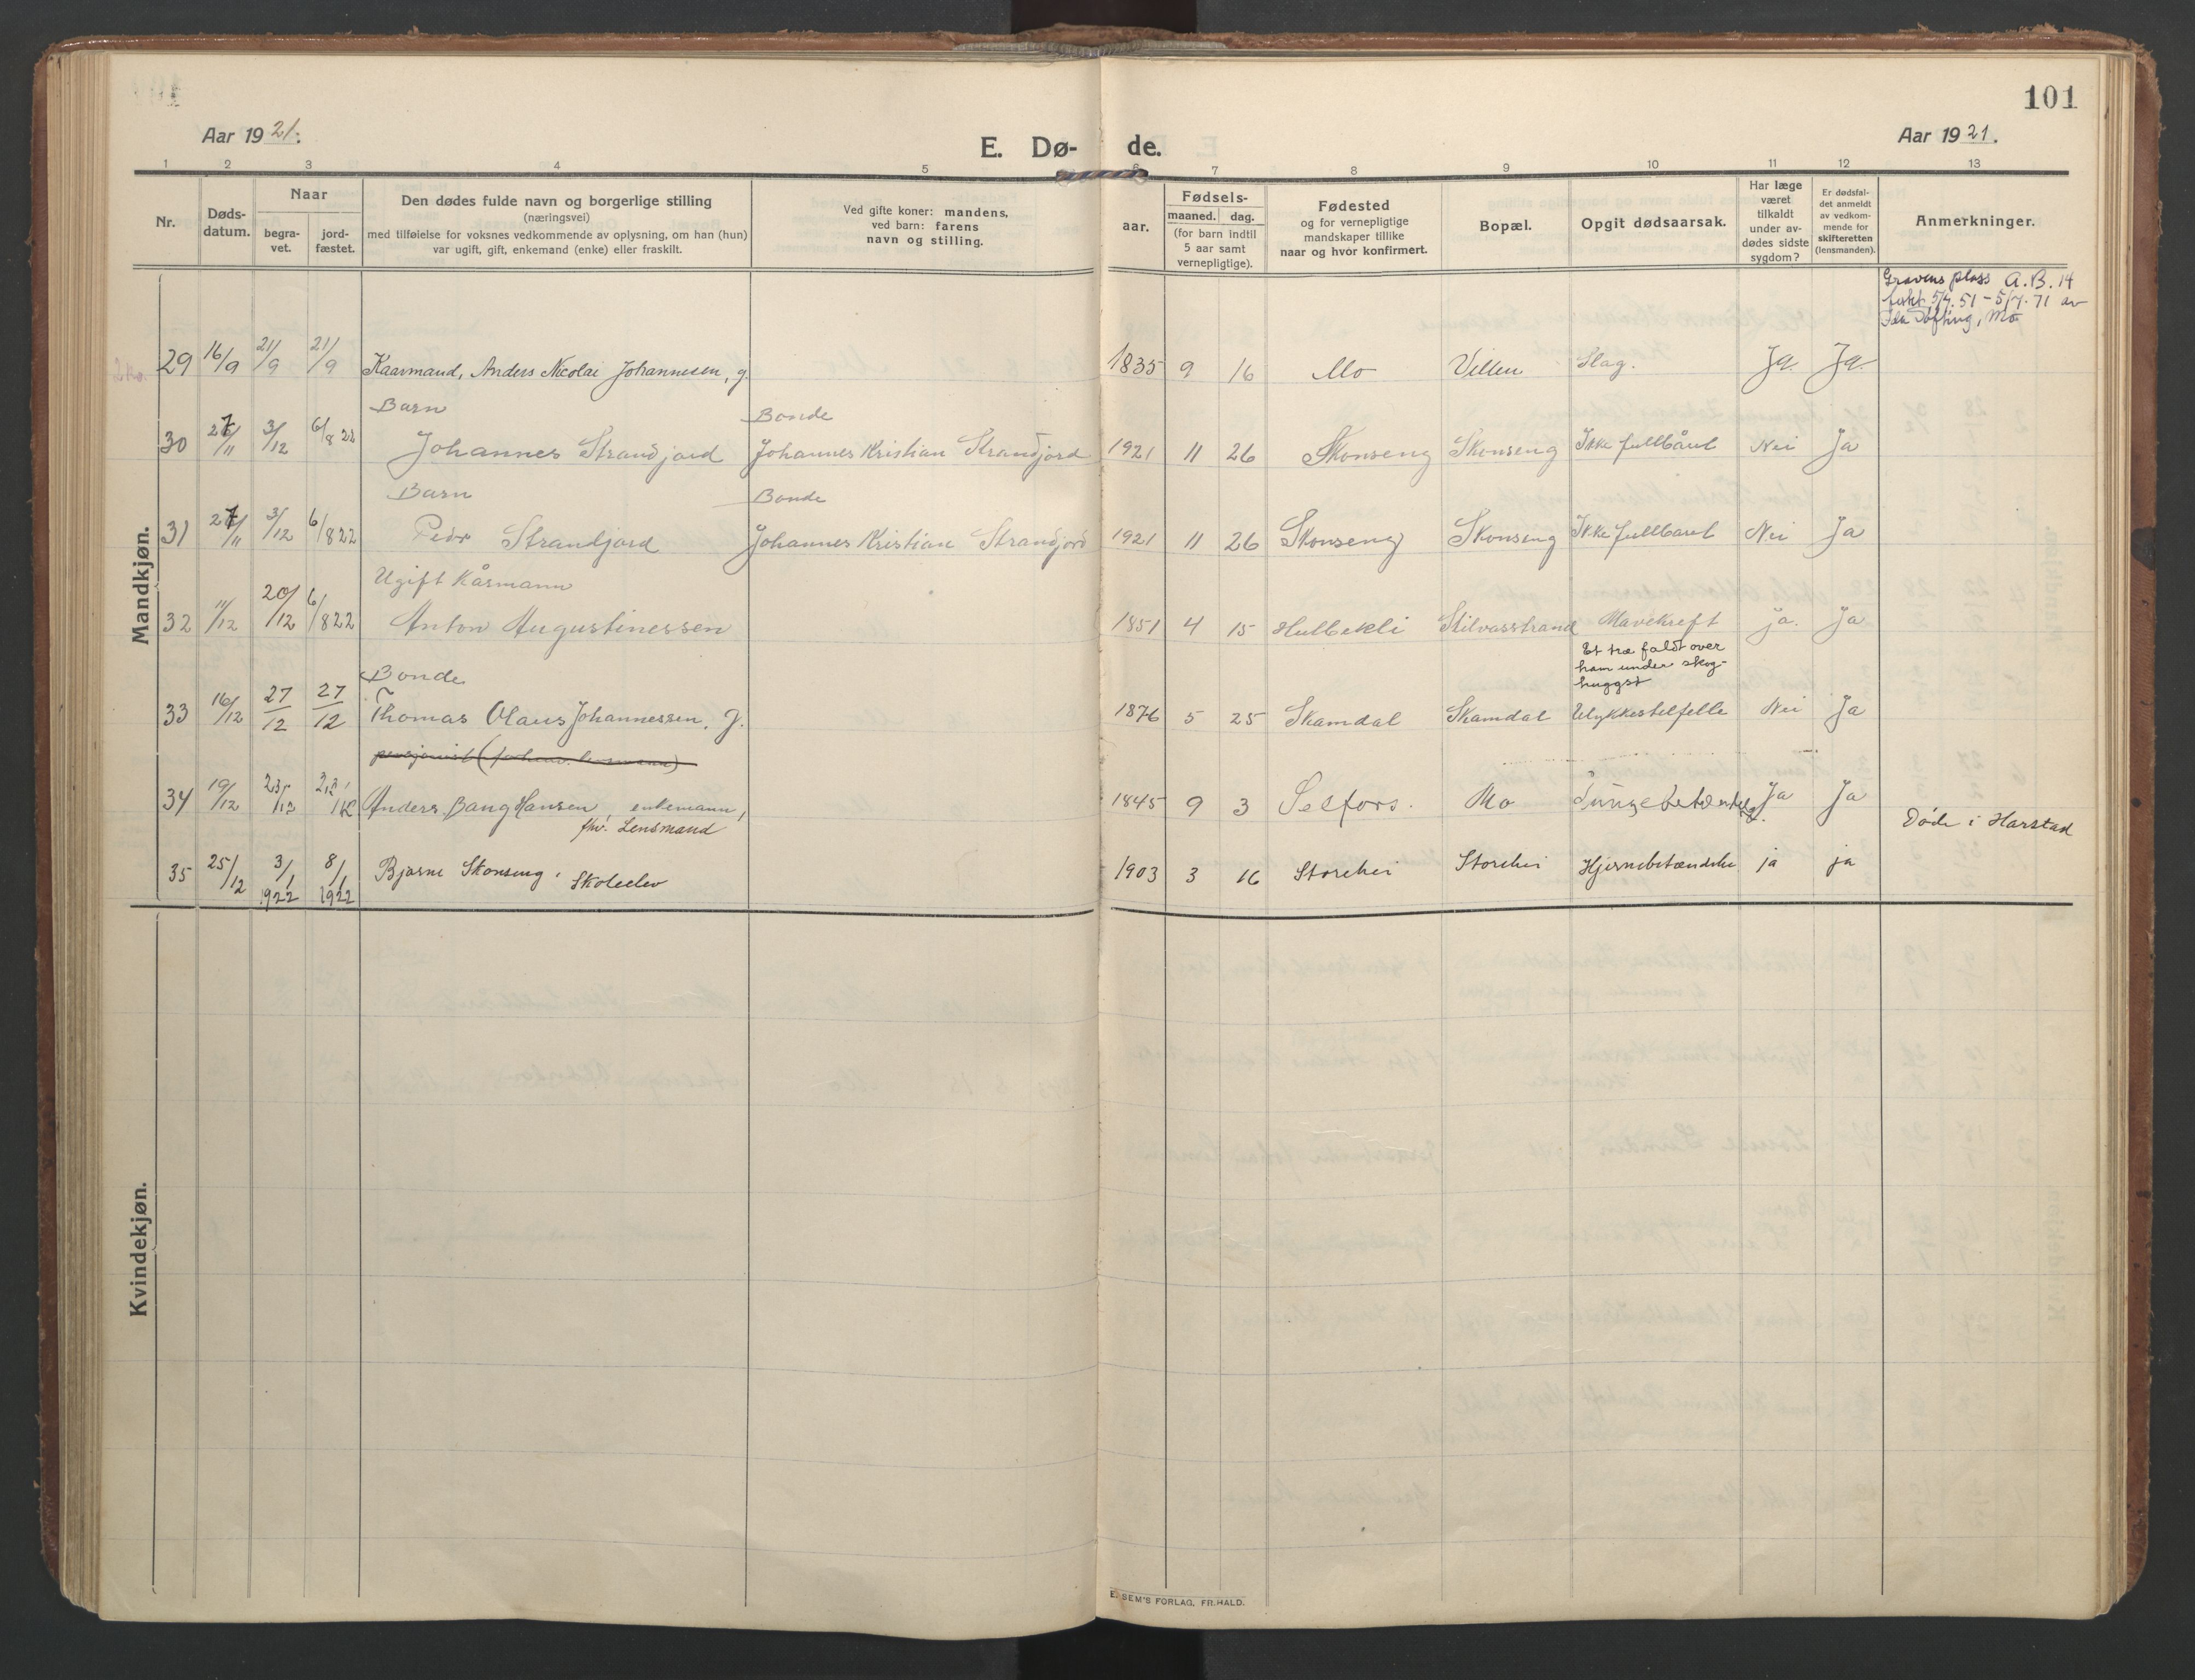 101
Aar 1921.
E. Dø- de.
Aar 1921.
1 2 3 4 5 6 7 8 9 10 11 12 13
Nr.
Døds-
datum.
Naar
begra-
vet.
jord-
fæstet.
Den dødes fulde navn og borgerlige stilling
(næringsvei)
med tilføielse for voksnes vedkommende av oplysning, om han (hun)
var ugift, gift, enkemand (enke) eller fraskilt.
Ved gifte koner: mandens,
ved barn: farens
navn og stilling.
Fødsels-
aar.
maaned. dag.
(for barn indtil
5 aar samt
vernepligtige).
Fødested
og for vernepligtige
mandskaper tillike
naar og hvor konfirmert.
Bopæl.
Opgit dødsaarsak.
Har læge
været
tilkaldt
under av-
dødes sidste
sygdom?
Er dødsfal-
det anmeldt
av vedkom-
mende for
skifteretten
(lensmanden).
Anmerkninger.
Mandkjøn.
Gravens plass A.B. 14
festet 5/7.51 - 5/7.71 av
Søfting, Mo
29 16/9 21/9 21/9 Kaarmand, Anders Nicolai Johannesen, g. 1835 9 16 Mo Villen Slag. Ja. Ja.
Barn Bonde
30 27/11 3/12 6/8 22 Johannes Strandjord Johannes Kristian Strandjord 1921 11 26 Skonseng Skonseng Ikke fullbåret Nei Ja
Barn Bonde
31 27/11 3/12 6/8 22 Peder Strandjord Johannes Kristian Strandjord 1921 11 26 Skonseng Skonseng Ikke fullbaaret Nei Ja
Ugift Kårmann
32 11/12 20/12 6/8 22 Anton Augustinessen 1851 4 15 Hulbekli Stilvasstrand Mavekreft ja. Ja
Et træ faldt over
ham under skog-
huggst
Bonde
33 16/12 27/12 27/12 Thomas Olaus Johannessen, g. 1876 5 25 Skamdal Skamdal Ulykkestilfelle Nei Ja
pensjonist (forhenv. lensmann)
34 19/12 Anders Bang Hansen enkemann, 1845 9 3 Selfors. Mo Lungebetændelse Ja Ja
fhv. Lensmand
Døde i Harstad
35 25/12 3/1 1922 8/1 1922 Bjarne Skonseng, Skoleelev 1903 3 16 Storehei Storehei Hjernebetændelse ja ja
Kvindekjøn.
E. SEM'S FORLAG, FR.HALD.